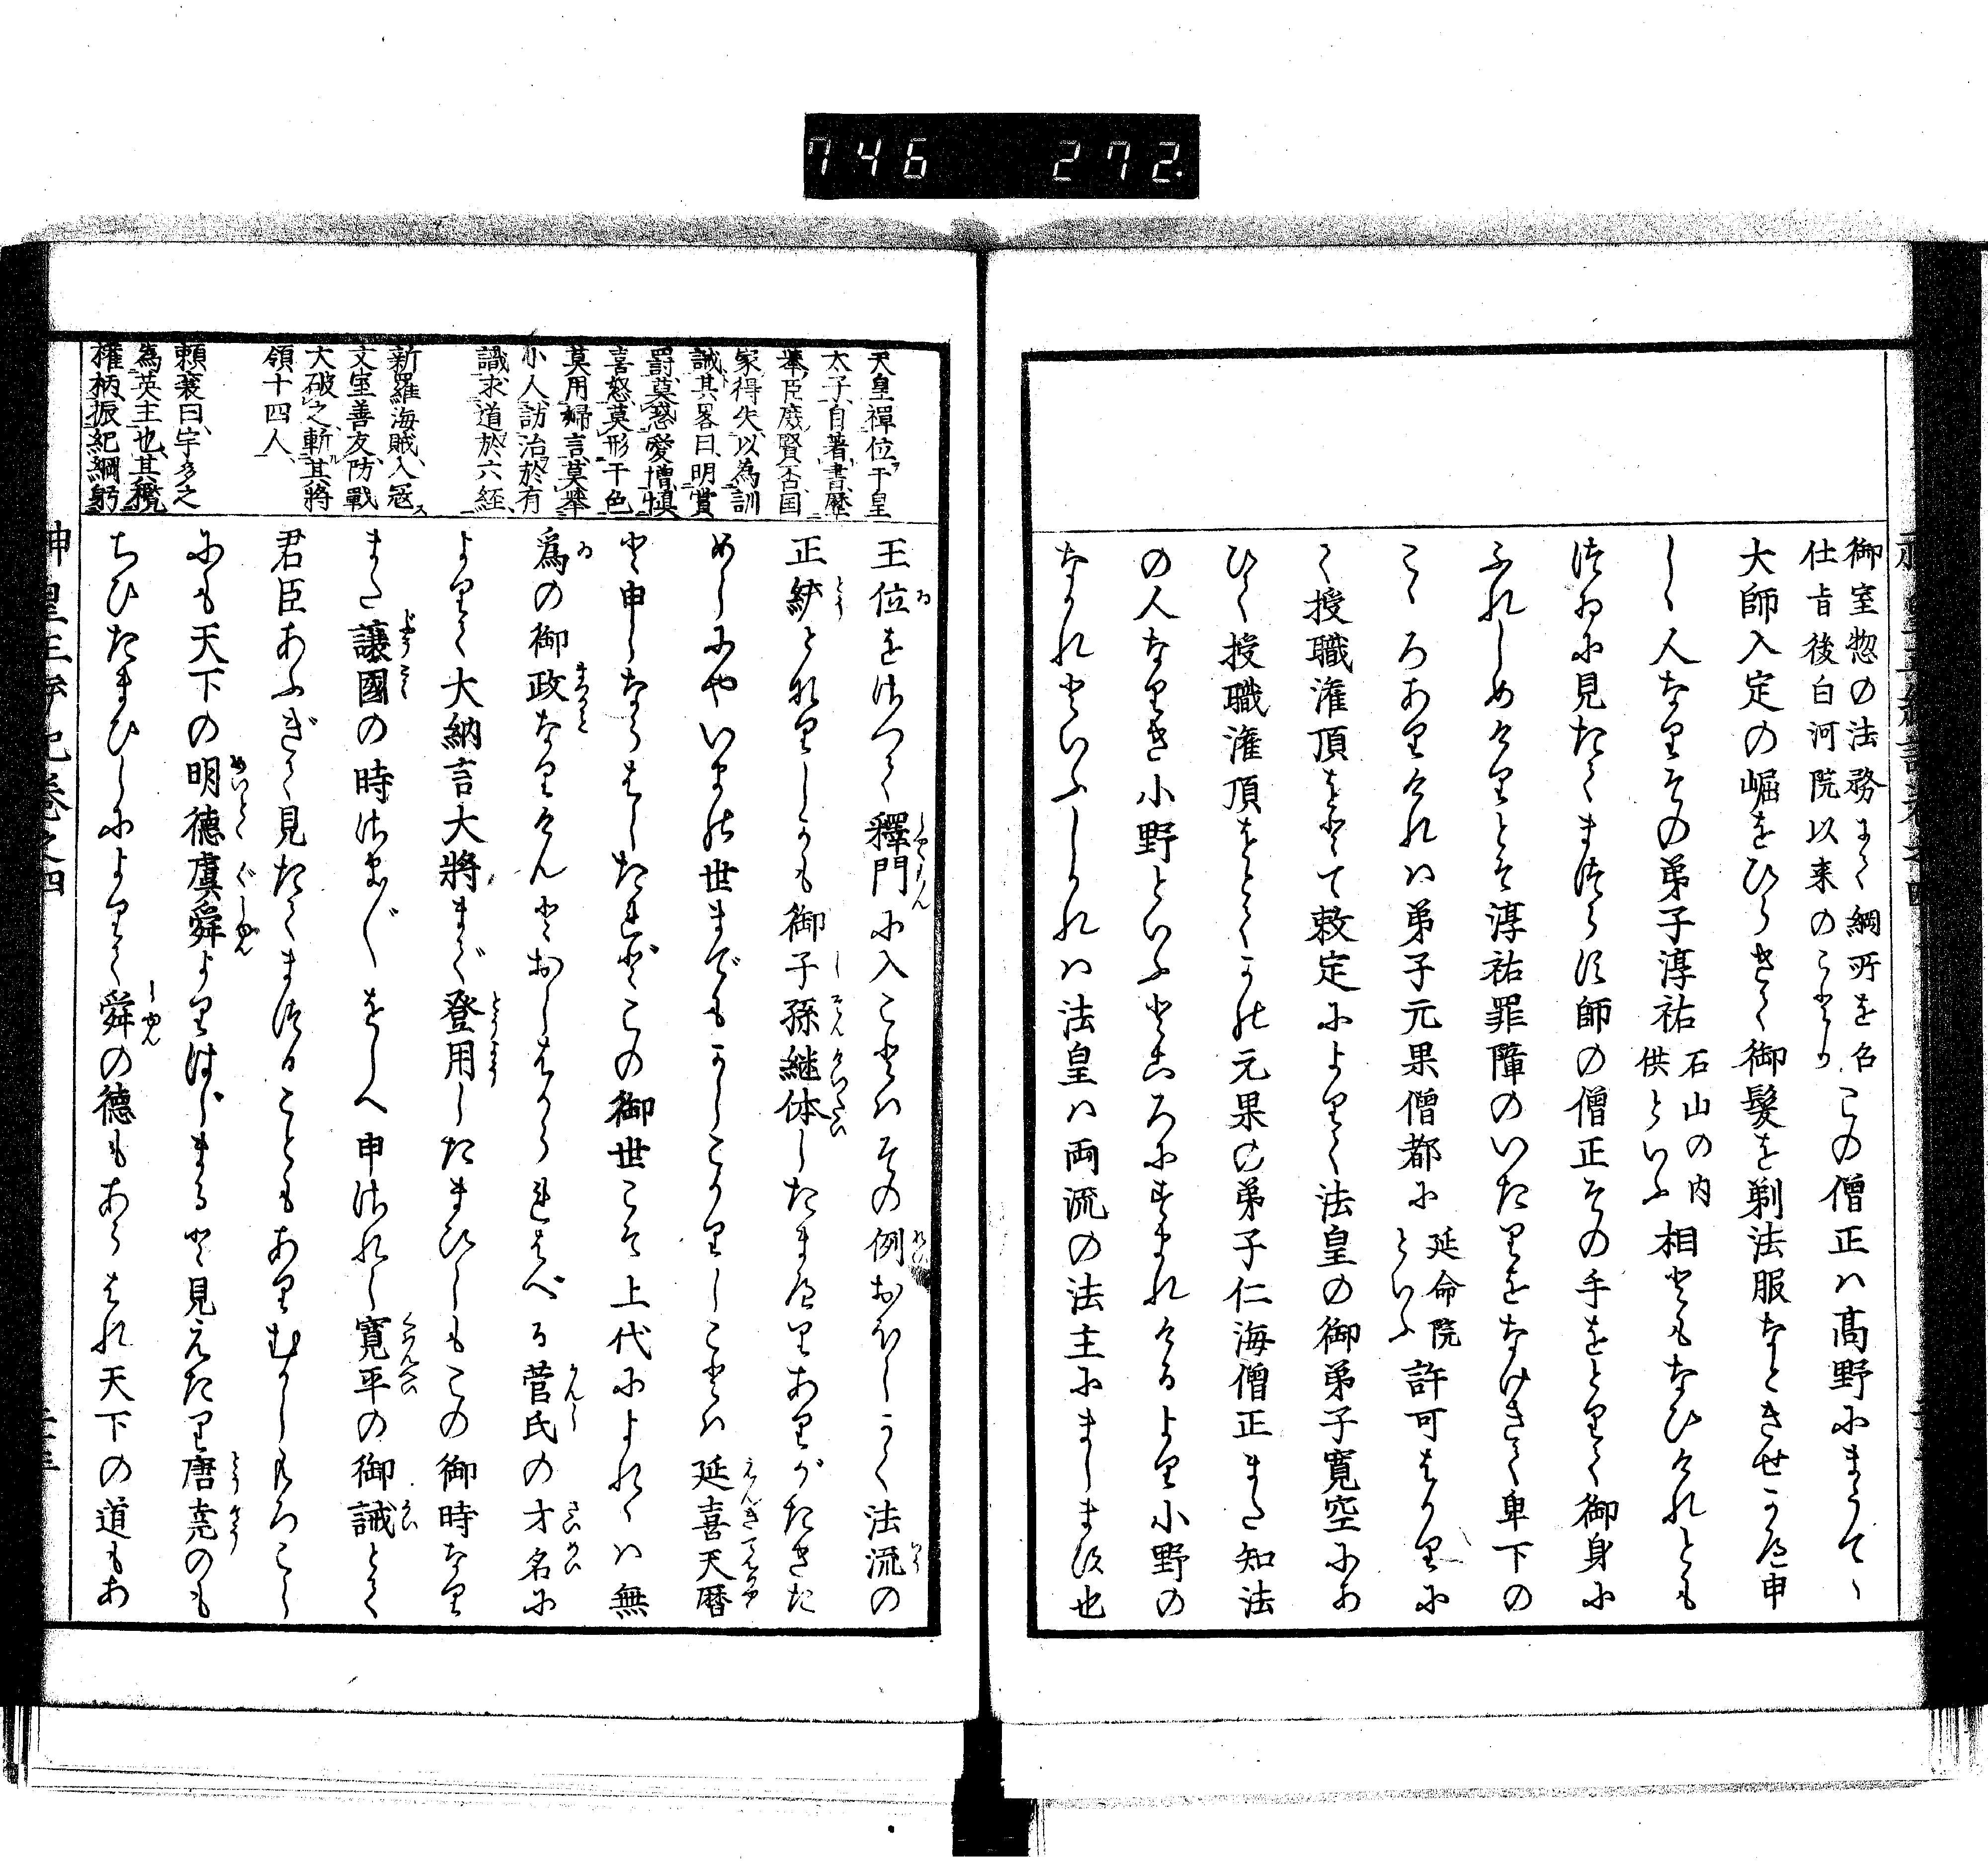 746 272.
御室惣の法務まて綱所を召
仕㫖後白河院以来のことか
この僧正ハ髙野にまうてゝ
大師入定の崛をひらきて御髪を剃法服なときせかへ申
しゝ人なりその弟子淳祐
石山の内
供といふ
相ともなひけれとも
つゐに見たてまつらす師の僧正その手をとりて御身に
ふれしめけりとそ淳祐罪障のいたりをなけきて卑下の
こゝろありけれハ弟子元果僧都に
延命院
といふ
許可はかりに
て授職潅頂をとて敕定によりて法皇の御弟子寛空にあ
ひて授職潅頂をとくかの元果の弟子仁海僧正また知法
の人なりき小野といふところにすまれけるより小野の
なかれといふしかれハ法皇ハ両流の法主にまします也
天皇禪位于皇
太子自著書歴
擧臣庶賢否国
家得失以為訓
誡其畧曰明賞
罸莫惑愛憎慎
喜怒莫形于色
莫用婦言莫擧
小人訪治於有
識求道於六経
新羅海賊入㓂
文室善友防戰
大破之斬其將
領十四人
頼襄曰宇多之
為英主也其攬
權柄振紀綱躬
王位をさつて釋門に入ことハその例おほしかく法流の
正統となりしかも御子孫継体したまへりありがたきた
めしにやいまの世までもかしこかりしことハ延喜天暦
と申しならはしたれどこの御世こそ上代によれゝハ無
爲の御政なりけんとおしはかられはべる菅氏の才名に
よりて大納言大將まで登用したまひしもこの御時なり
また讓國の時さまざまをしへ申されし寛平の御誡とて
君臣あふぎて見たてまつることもありむかしもろこし
にも天下の明德虞舜よりはじまると見えたり唐尭のも
ちひたまひしによりて舜の德もあらはれ天下の道もあ
神皇正統記巻之四